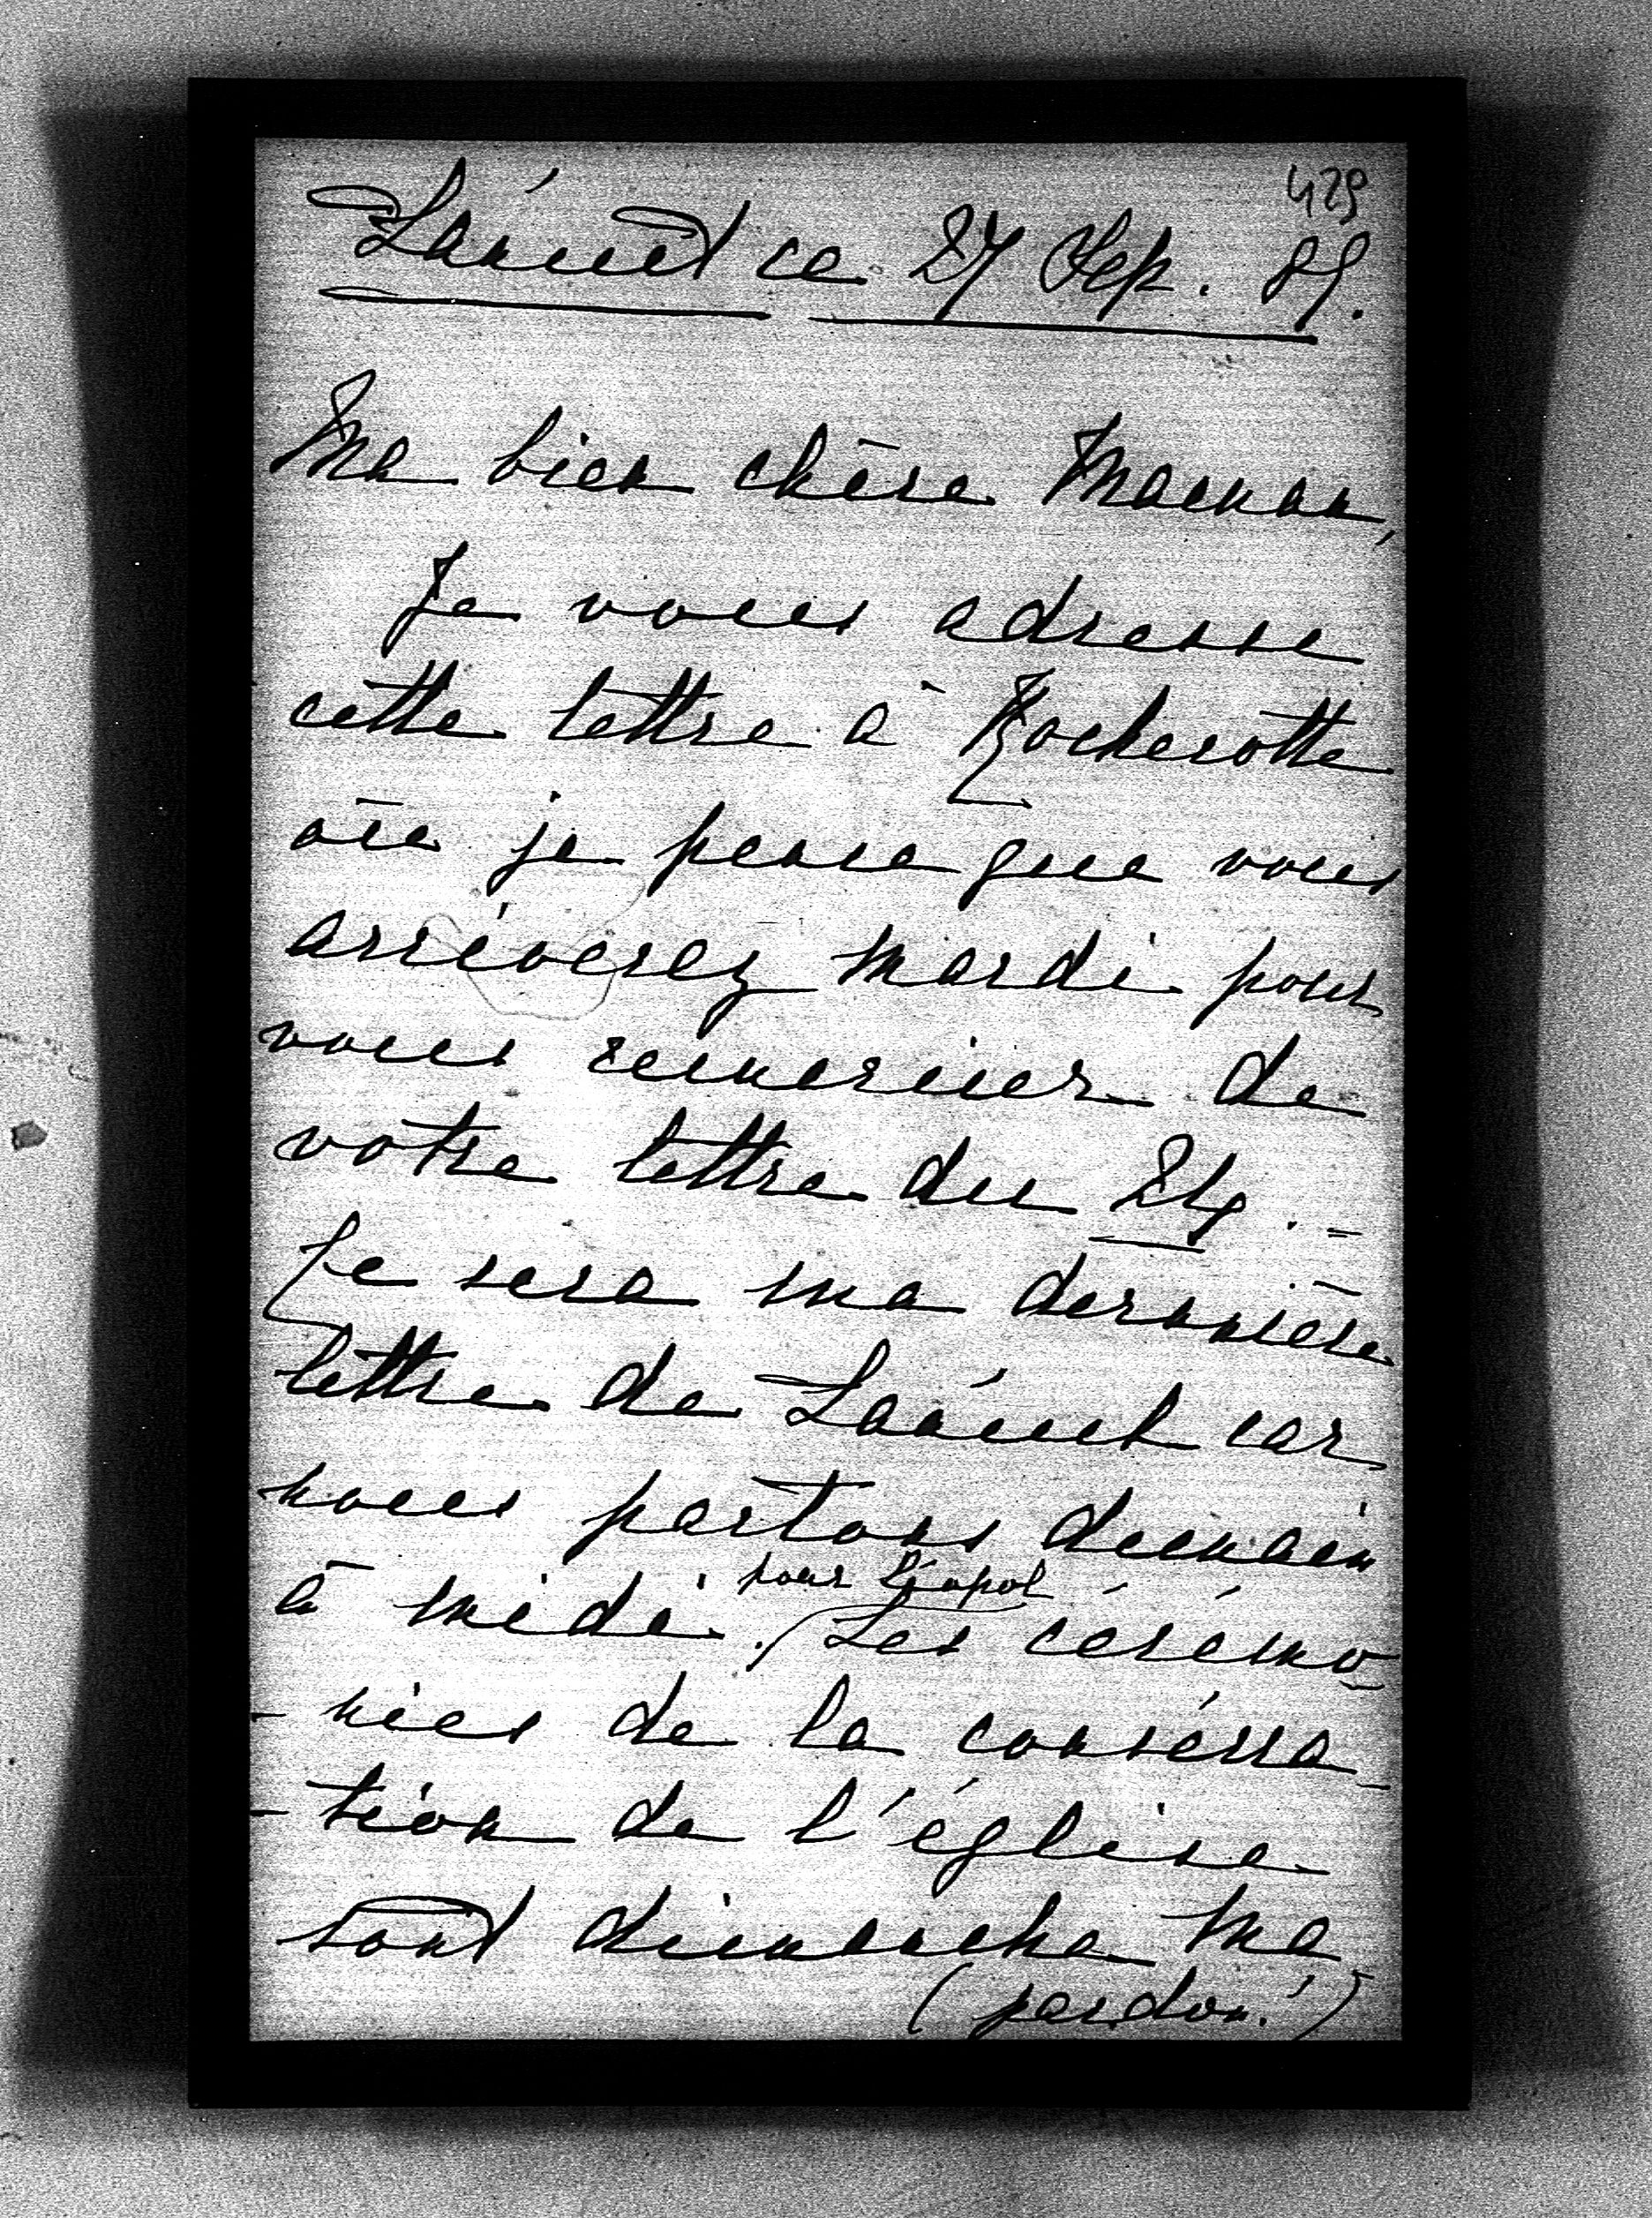 429
Łańcut ce 27 Sep. 89.
Ma bien chère Maman,
Je vous adresse
cette lettre à Rocherotte
où je pense que vous
arriverez mardi pour
vous remercier de
votre lettre du 24. -
Ce sera ma dernière
lettre de Łańcut car
nous partons demain
pour Léopol
à midi. Les cérémo-
- nies de la conséna-
- tion de l'église
sont dimanche Ma
(pardon!)